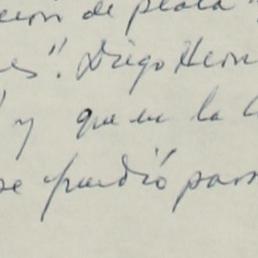 ción de plata
es". Diego Hern
y que en la
se perdió para